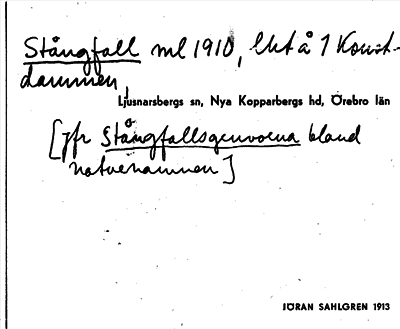 Stångfall ml 1910, lkt å 1 Konst-
dammen,
Ljusnarsbergs sn, Nya Kopparbergs hd, Örebro län
[jfr Stångfallsgruvorna bland
naturnamnen]
JÖRAN SAHLGREN 1913